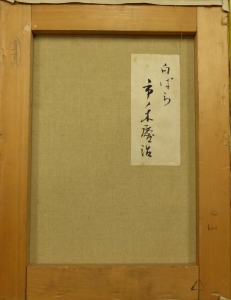 白ばら
市ノ木慶治